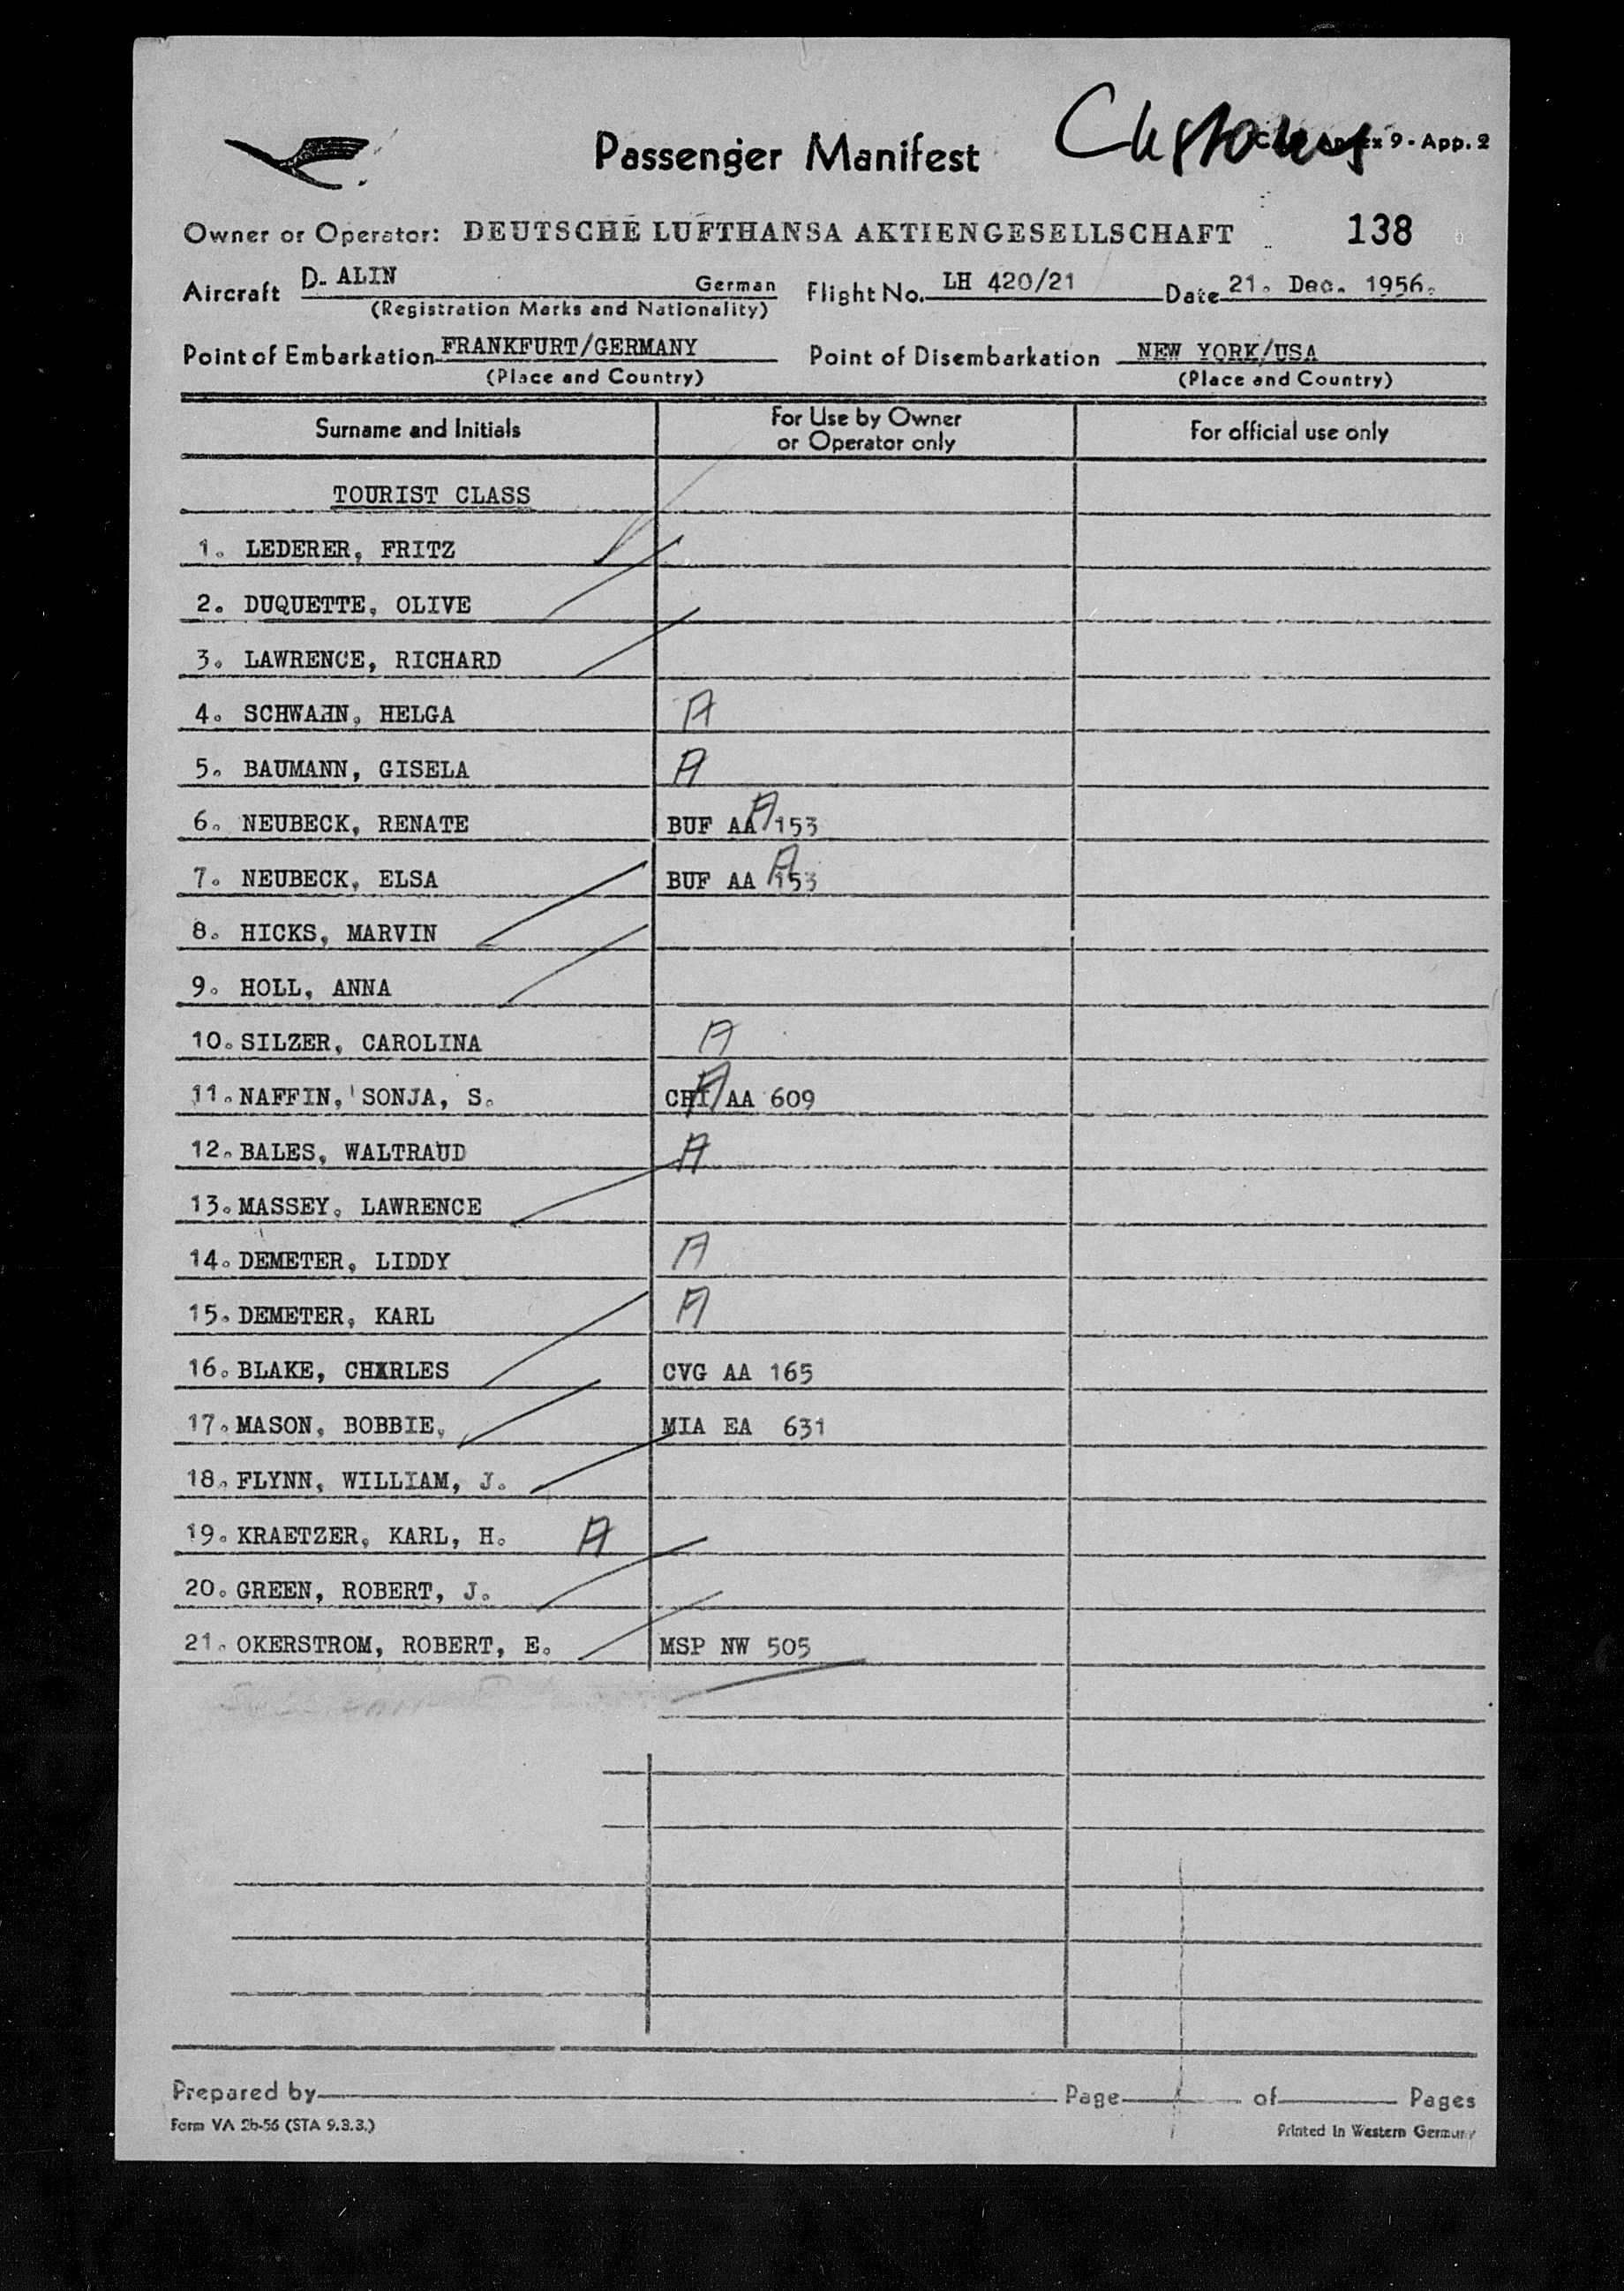 Customs
Passenger Manifest 9 - App. 2
Owner or Operator: DEUTSCHE LUFTHANSA AKTIENGESELLSCHAFT 138
Aircraft D- ALIN German Flight No. LH 420/21 Date 21. Dec. 1956.
(Registration Marks and Nationality)
Point of Embarkation FRANKFURT/GERMANY Point of Disembarkation NEW YORK/USA
(Place and Country) (Place and Country)
Surname and Initials For Use by Owner or Operator only For official use only
TOURIST CLASS
1. LEDERER, FRITZ
2. DUQUETTE, OLIVE
3. LAWRENCE, RICHARD
4. SCHWAHN, HELGA A
5. BAUMANN, GISELA A
6. NEUBECK, RENATE BUF AA 153 A
7. NEUBECK, ELSA BUF AA 153 A
8. HICKS, MARVIN
9. HOLL, ANNA
10. SILZER, CAROLINA A
11. NAFFIN, SONJA, S. CHI AA 609 A
12. BALES, WALTRAUD A
13. MASSEY, LAWRENCE
14. DEMETER, LIDDY A
15. DEMETER, KARL A
16. BLAKE, CHARLES CVG AA 165
17. MASON, BOBBIE, MIA EA 631
18. FLYNN, WILLIAM, J.
19. KRAETZER, KARL, H. A
20. GREEN, ROBERT, J.
21. OKERSTROM, ROBERT, E. MSP NW 505
Prepared by Page of Pages
Form VA 2b-56 (STA 9.3.3.) Printed in Western Germany